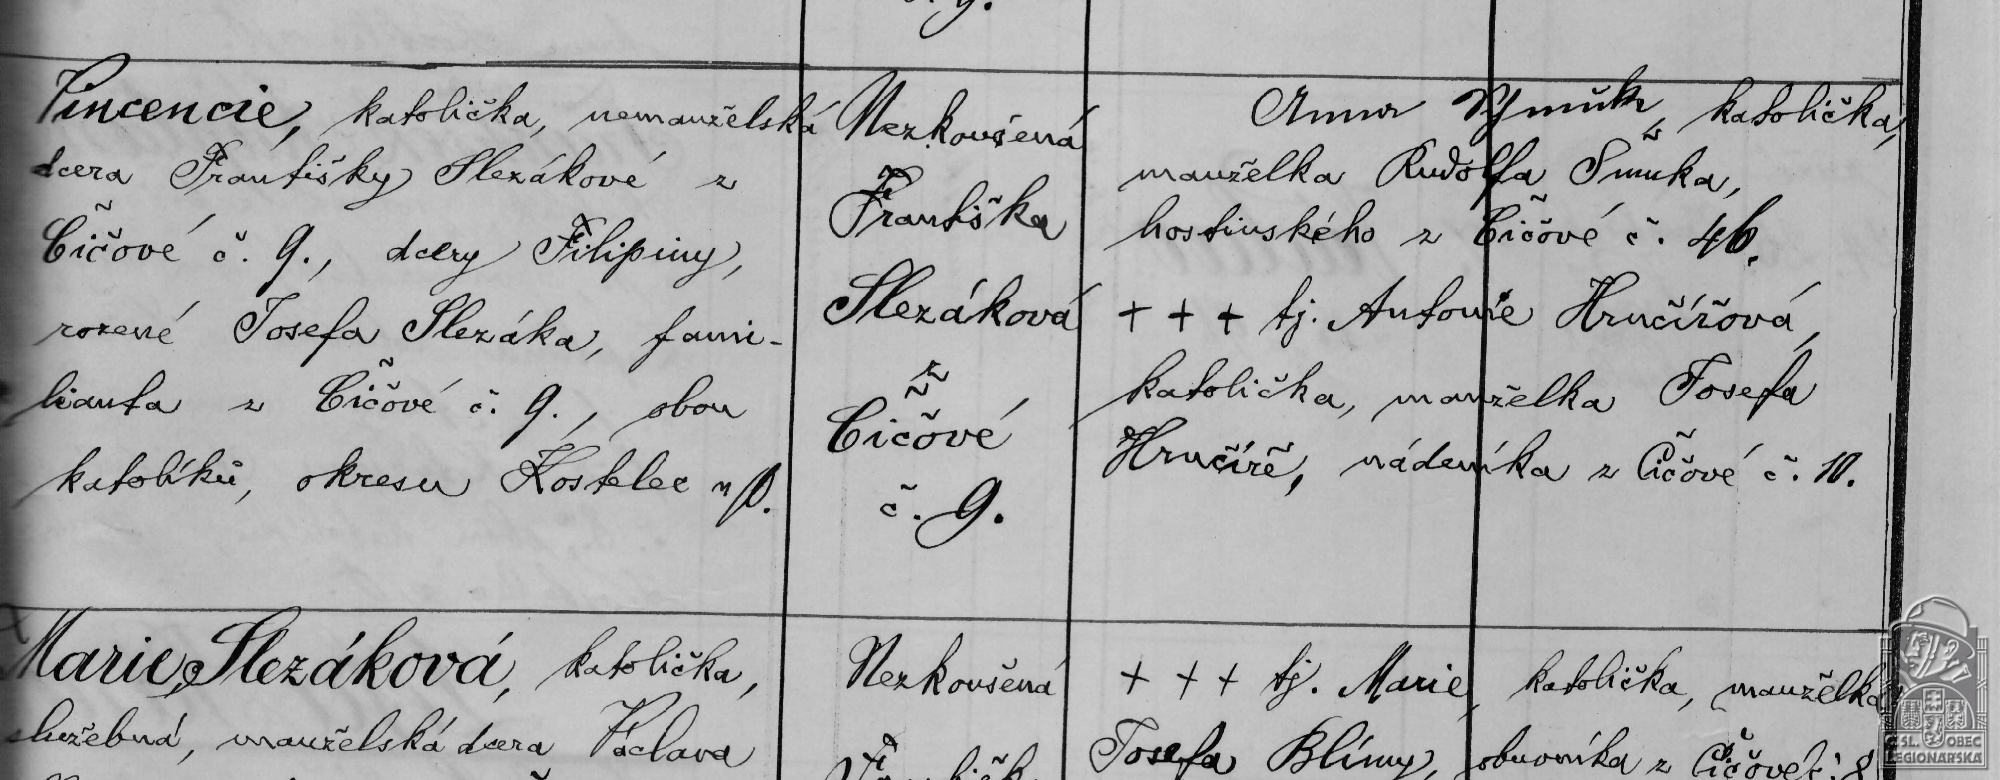 Vincencie, katolička, nemanželská
dcera Františky Slezákové z
Čičové č. 9., dcery Filipiny,
rozené Josefa Slezáka, fami-
lianta z Čičové č. 9., obou
katolíků, okresu Kostelec n/O.
Nezkoušená
Františka
Slezáková
z
Čičové
č. 9.
Anna katolička,
manželka Rudolfa Šmuka,
hostinského z Čičové č. 46.
+ + + tj. Antonie Hrnčířová,
katolička, manželka Josefa
Hrnčíře, nádeníka z Čičové č. 10.
Marie Slezáková, katolička,
služebná, manželská dcera Václava
Nezkoušená
+ + + tj. Marie, katolička, manželka
Josefa Blímy, obuvníka z Čičové č. 8
ČSL. OBEC
LEGIONÁŘSKÁ